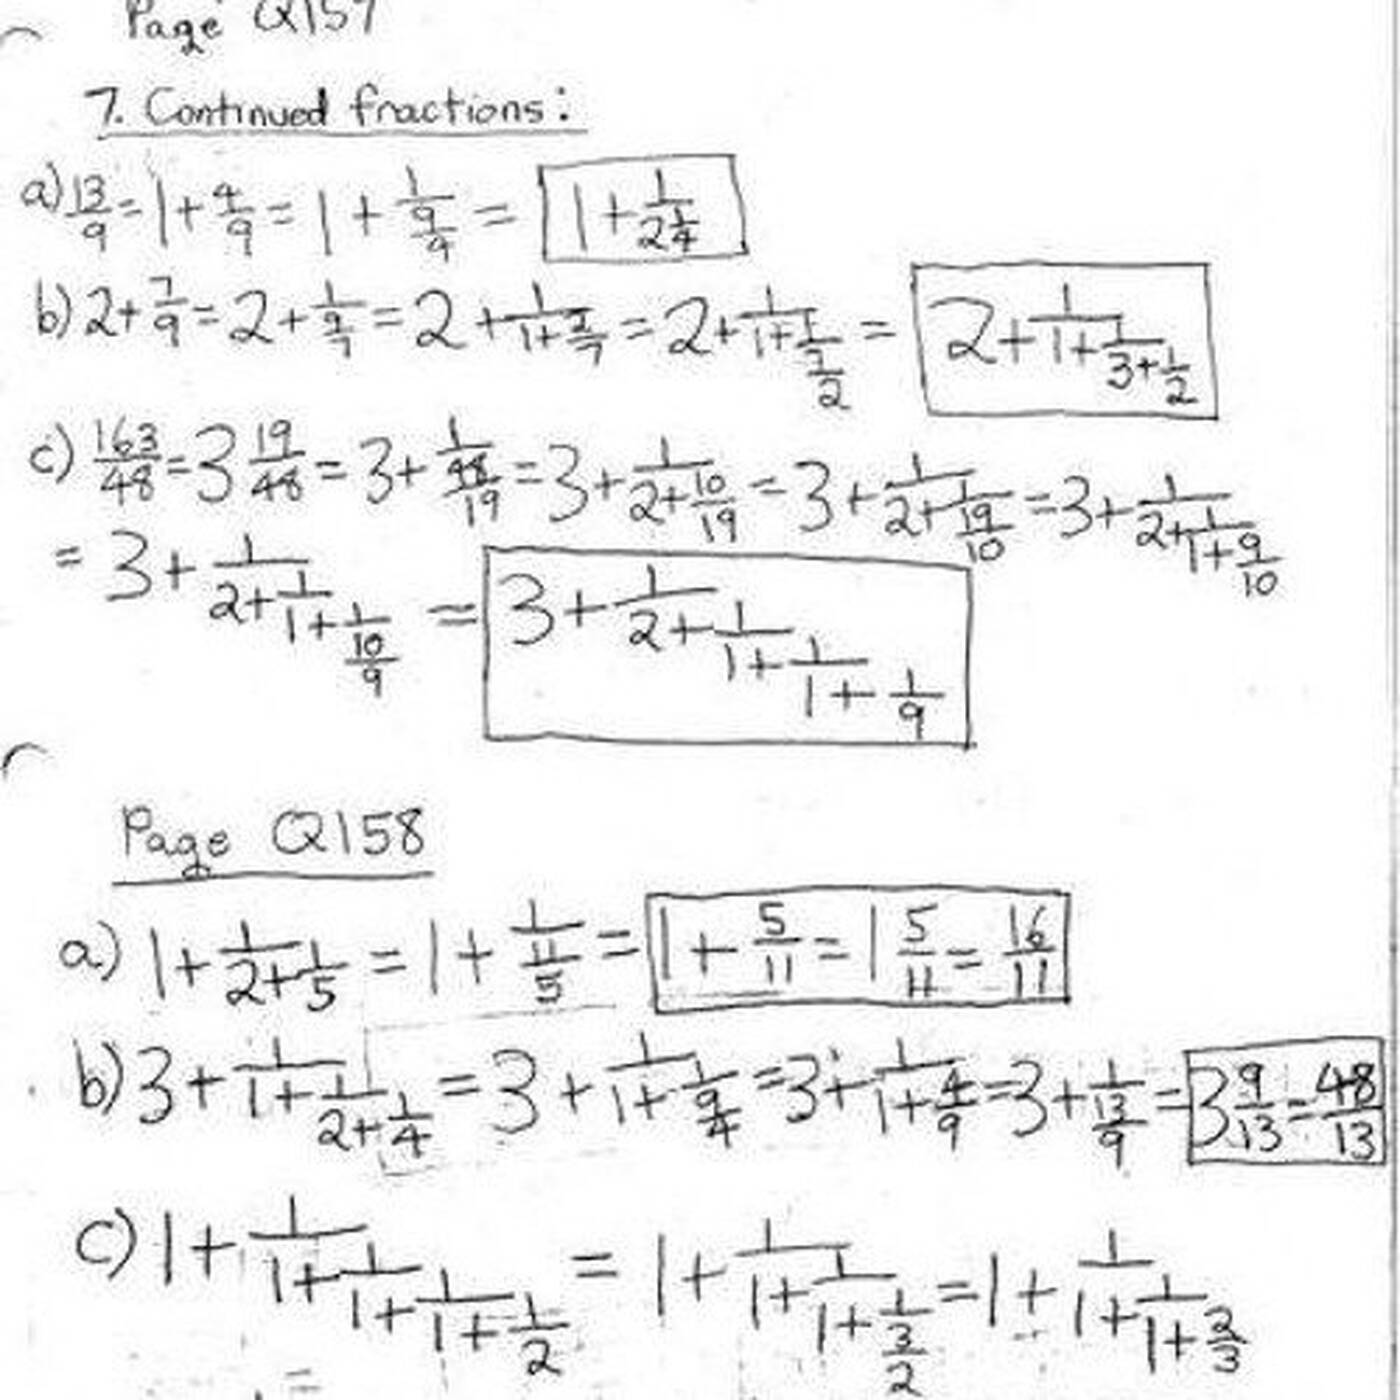 Page Q157
7. Continued fractions:
a) 13/9 = 1 + 4/9 = 1 + 1/(9/4) = 1 + 1/(2 1/4)
b) 2 + 7/9 = 2 + 1/(9/7) = 2 + 1/(1 + 2/7) = 2 + 1/(1 + 1/(7/2)) = 2 + 1/(1 + 1/(3 + 1/2))
c) 163/48 = 3 19/48 = 3 + 1/(48/19) = 3 + 1/(2 + 10/19) = 3 + 1/(2 + 1/(19/10)) = 3 + 1/(2 + 1/(1 + 9/10))
= 3 + 1/(2 + 1/(1 + 1/(10/9))) = 3 + 1/(2 + 1/(1 + 1/(1 + 1/9)))
Page Q158
a) 1 + 1/(2 + 1/5) = 1 + 1/(11/5) = 1 + 5/11 = 1 5/11 = 16/11
b) 3 + 1/(1 + 1/(2 + 1/4)) = 3 + 1/(1 + 1/(9/4)) = 3 + 1/(1 + 4/9) = 3 + 1/(13/9) = 3 9/13 = 48/13
c) 1 + 1/(1 + 1/(1 + 1/(1 + 1/2))) = 1 + 1/(1 + 1/(1 + 1/(3/2))) = 1 + 1/(1 + 1/(1 + 2/3))
=